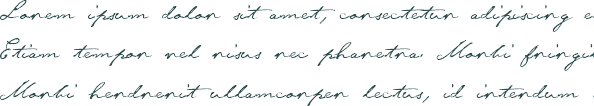 Lorem ipsum dolor sit amet, consectetur adipiscing e
Etiam tempor vel risus nec pharetra. Morbi fringi
Morbi hendrerit ullamcorper lectus, id interdum